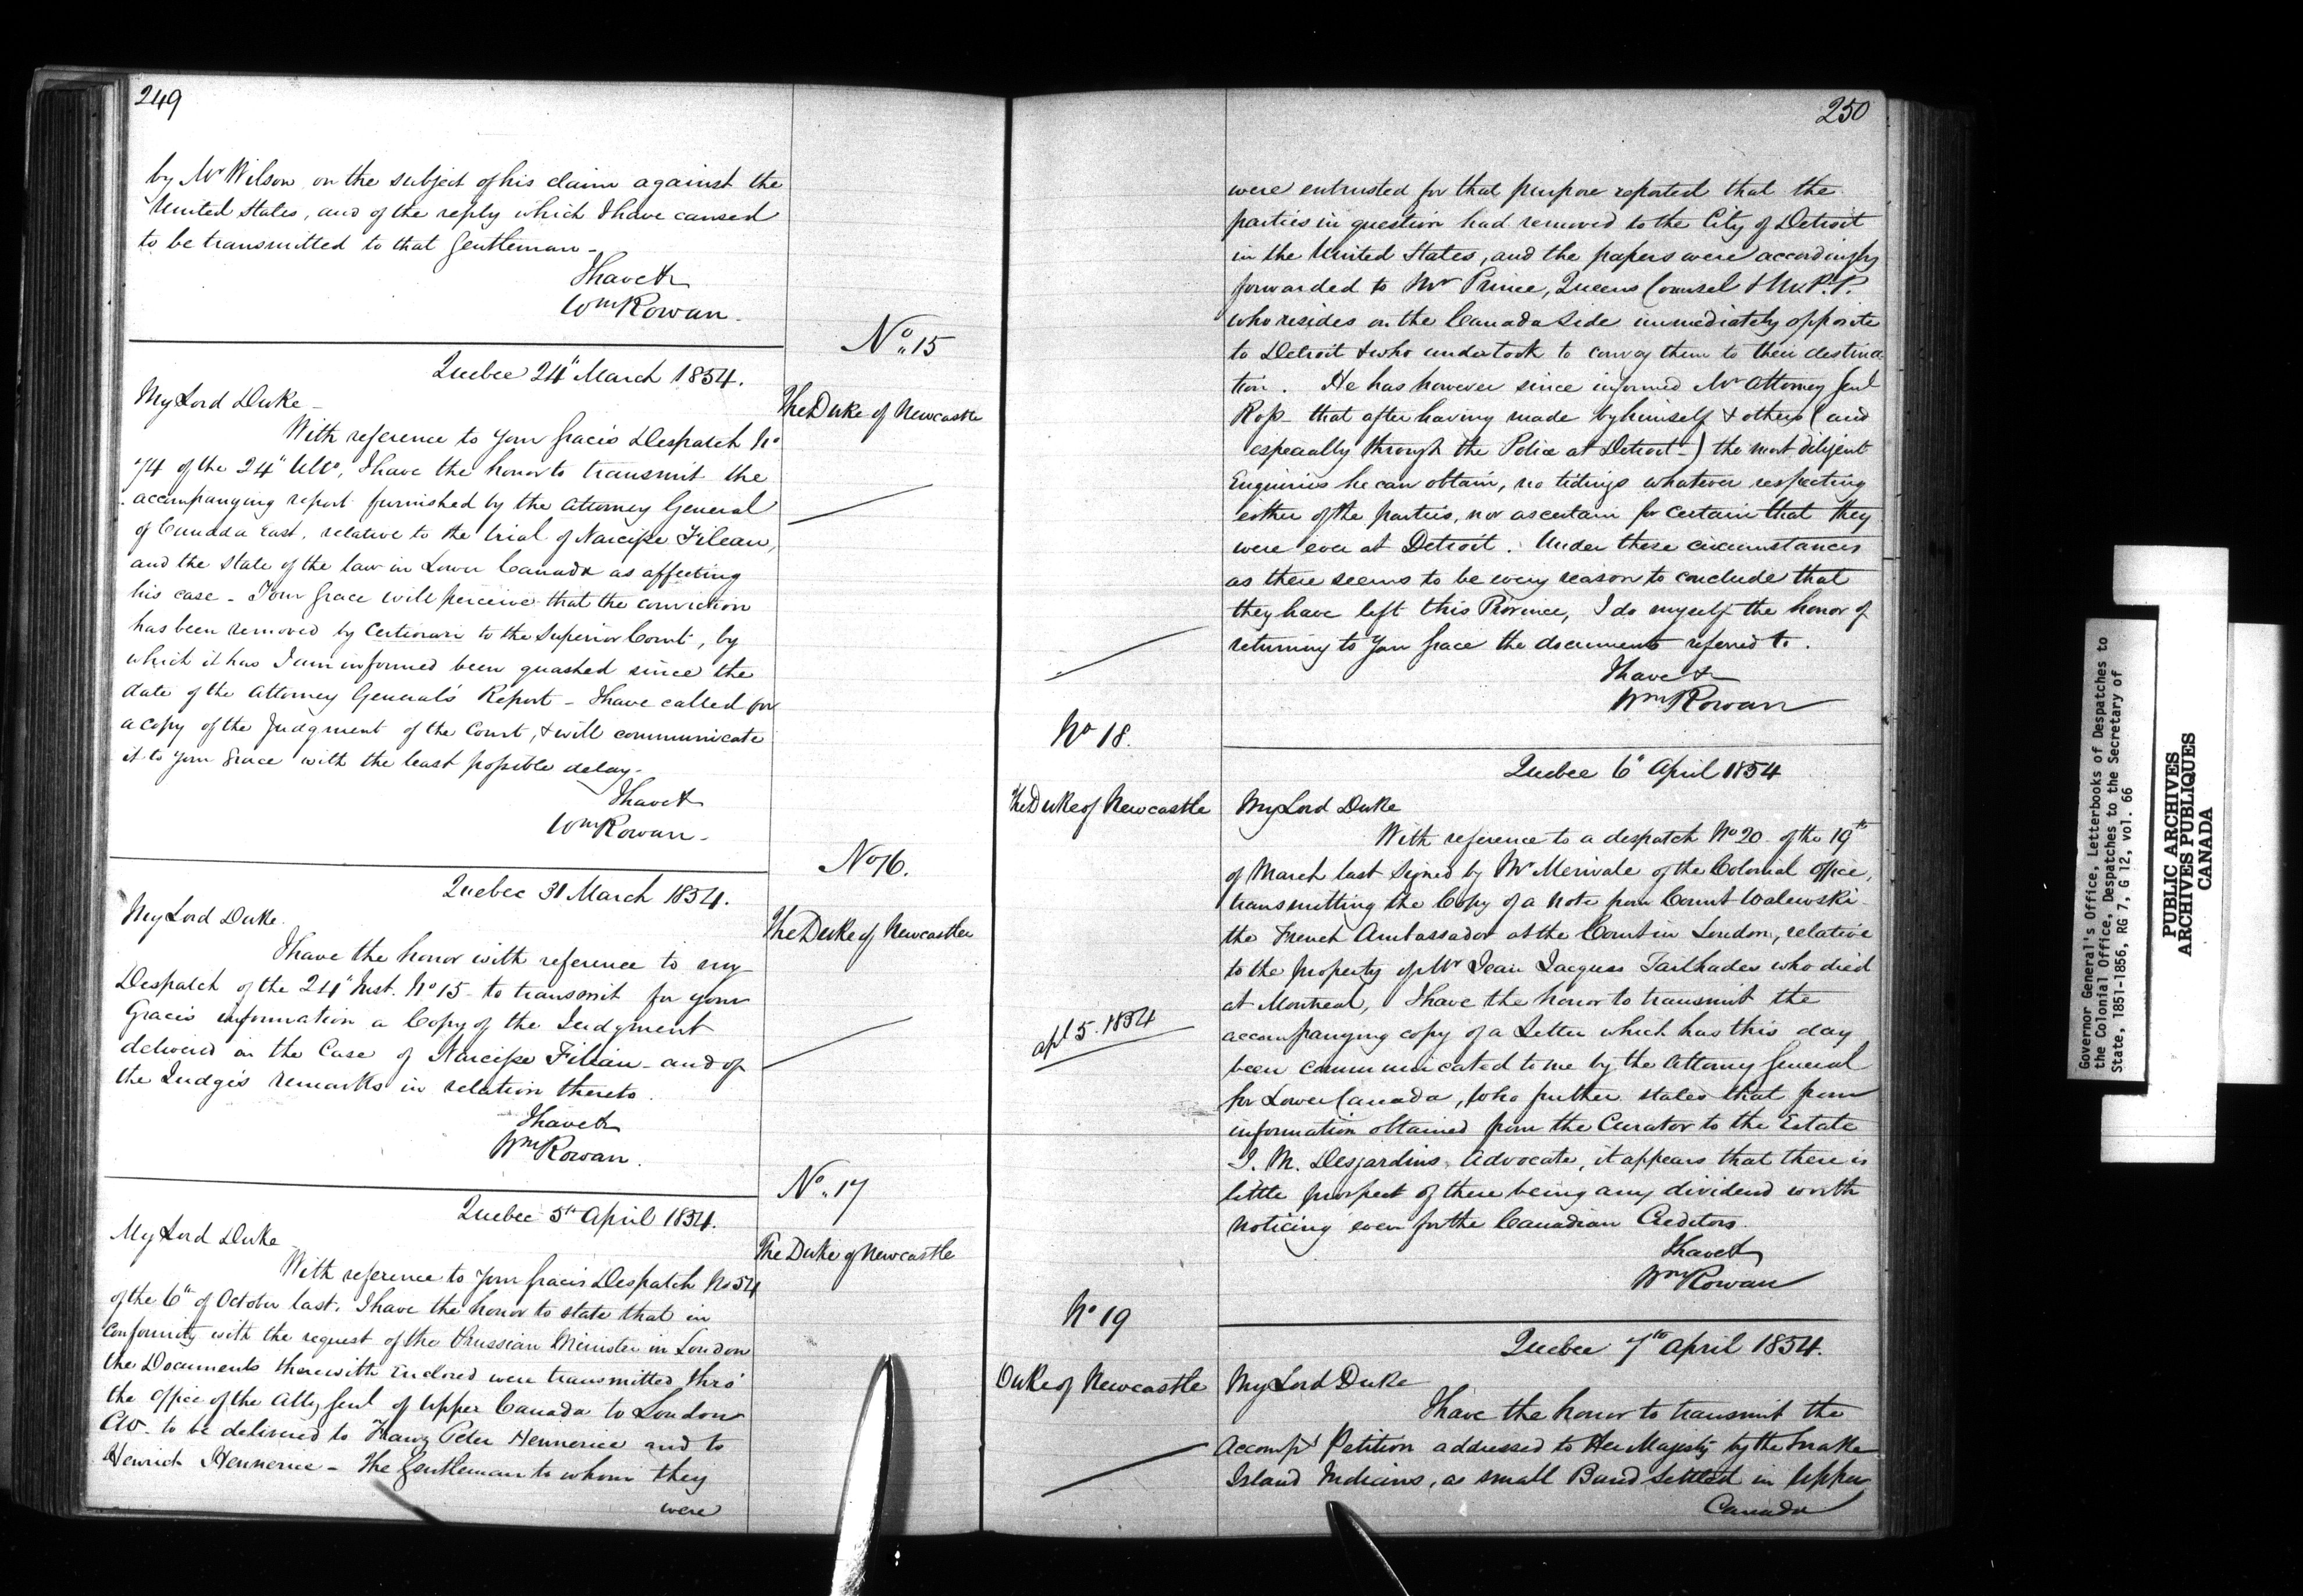 249
by Mr Wilson on the subject of his claim against the
United States, and of the reply which I have caused
to be transmitted to that Gentleman -
I have &
Wm Rowan -
No. 15
Quebec 24" March 1854.
The Duke of Newcastle
My Lord Duke -
With reference to Your Grace's Despatch No
74 of the 24" Ulto, I have the honor to transmit the
accompanying report furnished by the Attorney General
of Canada East, relative to the trial of Narcisse Filean,
and the State of the law in Lower Canada as affecting
his case - Your Grace will perceive that the conviction
has been removed by Certiorari to the Superior Court, by
which it has I am informed been quashed since the
date of the Attorney General's Report - I have called for
a copy of the Judgment of the Court, & will communicate
it to your Grace with the least possible delay -
I have &
Wm Rowan -
No 16.
Quebec 31 March 1854.
The Duke of Newcastle
My Lord Duke
I have the honor with reference to my
Despatch of the 24" Inst. No 15 - to transmit for your
Grace's information a Copy of the Judgment
delivered in the Case of Narcisse Filian - and of
the Judge's remarks in relation thereto.
I have &
Wm Rowan.
No. 17
Quebec 5th April 1854.
The Duke of Newcastle
My Lord Duke
With reference to Your Grace's Despatch No 54
of the 6th of October last, I have the honor to state that in
Conformity with the request of the Prussian Minister in London
the Documents therewith Enclosed were transmitted thro'
the Office of the Atty Genl of Upper Canada to London
CW. to be delivered to Franz Peter Hennerice and to
Henrich Hennerice - The Gentleman to whom they
were
250
were entrusted for that purpose reported that the
parties in question had removed to the City of Detroit
in the United States, and the papers were accordingly
forwarded to Mr Prince, Queens Counsel & M.P.P.
who resides on the Canada Side immediately opposite
to Detroit & who undertook to convey them to their destina
tion. He has however since informed Mr Attorney Genl
Ross - that after having made by himself & others (and
especially through the Police at Detroit -) the most diligent
Enquiries he can obtain, no tidings whatever respecting
either of the parties, nor ascertain for certain that they
were ever at Detroit. Under these circumstances
as there seems to be every reason to conclude that
they have left this Province, I do myself the honor of
returning to Your Grace the documents referred to.
I have &
Wm Rowan
No 18.
Quebec 6" April 1854
The Duke of Newcastle
My Lord Duke
With reference to a despatch No 20 of the 19th
of March last Signed by Mr Merivale of the Colonial Office,
transmitting the Copy of a Note from Count Walewski -
the French Ambassador at the Court in London, relative
to the property of Mr Jean Jacques Tailhades who died
at Montreal, I have the honor to transmit the
apl 5. 1854
accompanying copy of a Letter which has this day
been communicated to me by the Attorney General
for Lower Canada, who further states that from
information obtained from the Curator to the Estate
J. M. Desjardins, Advocate, it appears that there is
little prospect of there being any dividend worth
noticing even for the Canadian Creditors.
I have &
Wm Rowan
No 19
Quebec 7th April 1854.
Duke of Newcastle
My Lord Duke
I have the honor to transmit the
Accompg Petition addressed to Her Majesty by the Snake
Island Indians, a small Band settled in Upper
Canada
Governor General's Office, Letterbooks of Despatches to
the Colonial Office, Despatches to the Secretary of
State, 1851-1856, RG 7, G 12, vol. 66
PUBLIC ARCHIVES
ARCHIVES PUBLIQUES
CANADA